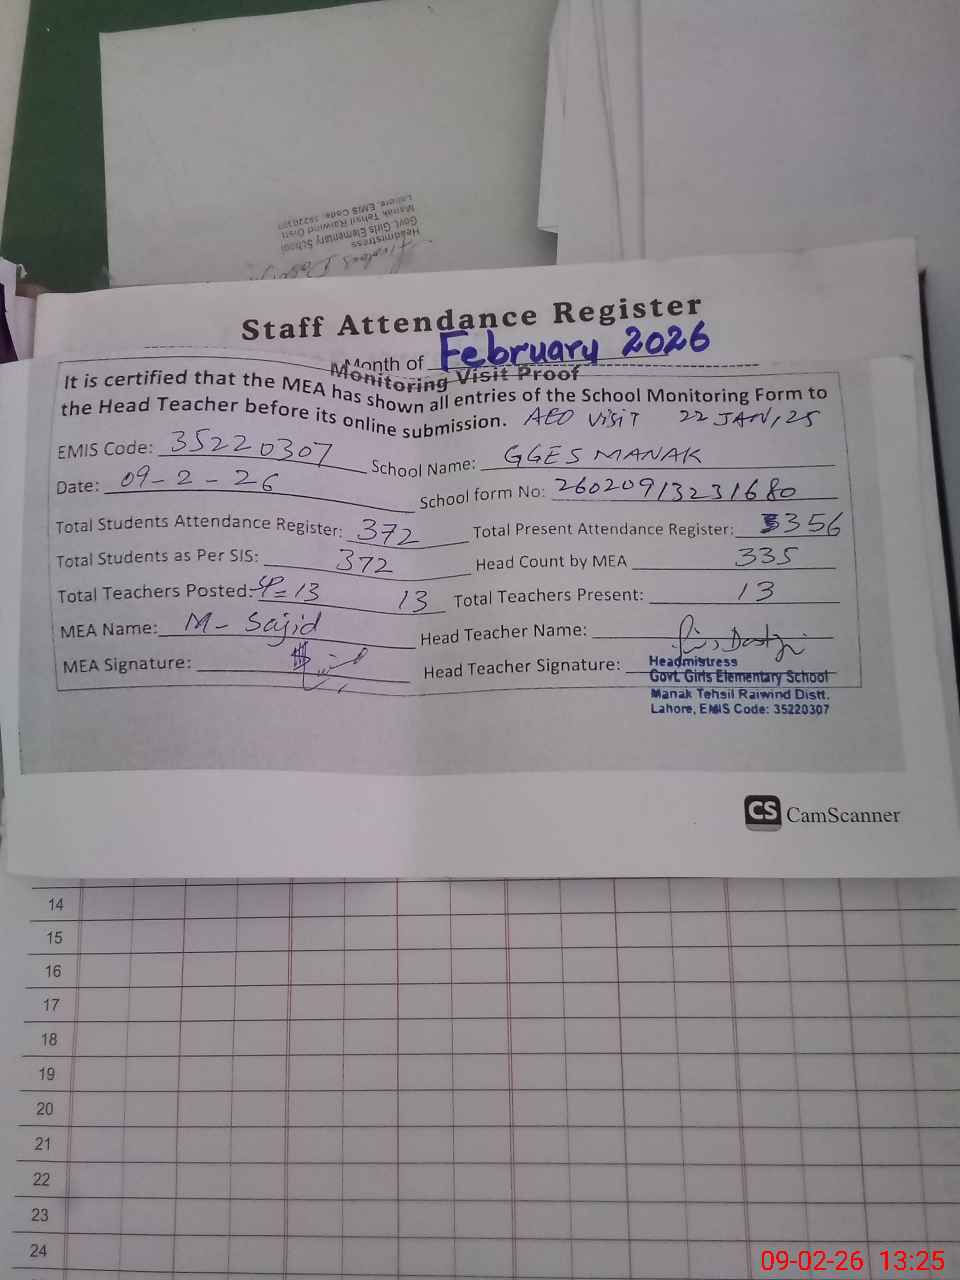 Lahore, EMIS Code: 35220307
Manak Tehsil Raiwind Distt.
Govt. Girls Elementary School
Headmistress
Staff Attendance Register
Month of February 2026
Monitoring Visit Proof
It is certified that the MEA has shown all entries of the School Monitoring Form to
the Head Teacher before its online submission. AEO VISIT 22 JAN, 25
EMIS Code: 35220307 School Name: GGES MANAK
Date: 09-2-26 School form No: 26020913231680
Total Students Attendance Register: 372 Total Present Attendance Register: 356
Total Students as Per SIS: 372 Head Count by MEA 335
Total Teachers Posted: SP=13 13 Total Teachers Present: 13
MEA Name: M- Sajid Head Teacher Name:
MEA Signature: Head Teacher Signature:
Headmistress
Govt. Girls Elementary School
Manak Tehsil Raiwind Distt.
Lahore, EMIS Code: 35220307
CS CamScanner
14
15
16
17
18
19
20
21
22
23
24
09-02-26 13:25